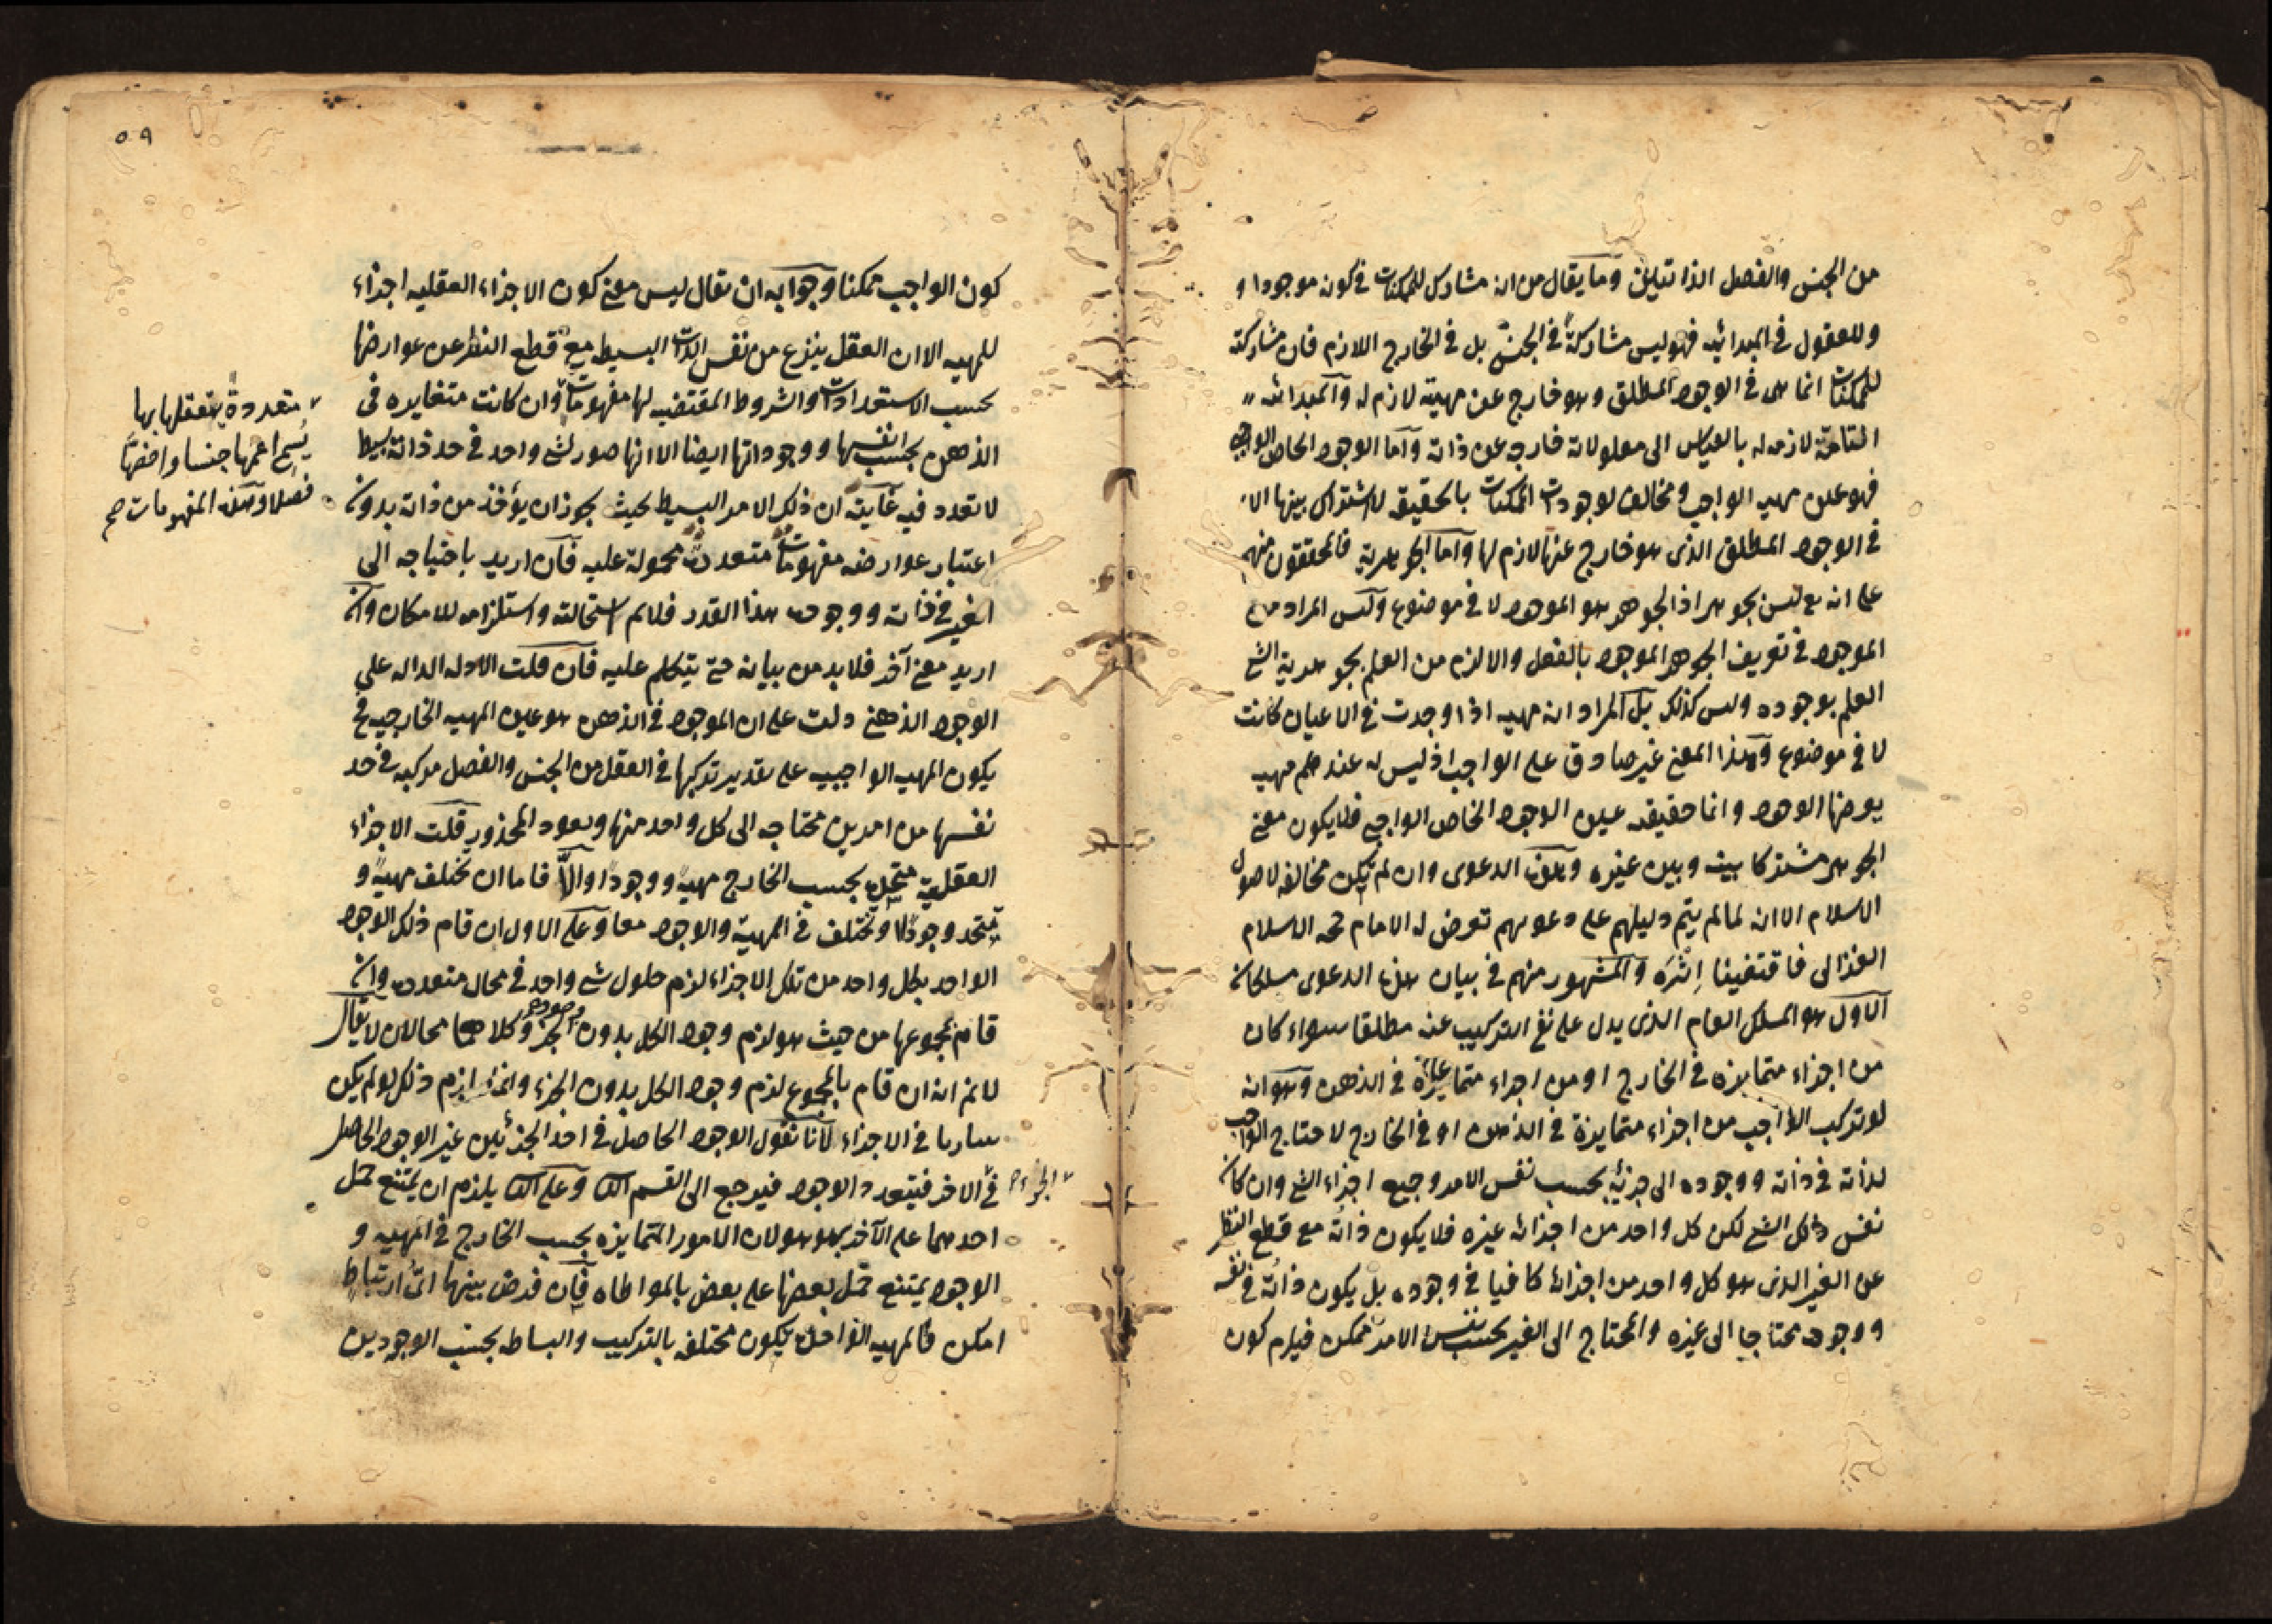 من الجنس والفصل الذاتيين وما يقال من انه مشارك للممكنات في كونه موجودا و
وللعقول في المبدائيه فهو ليس مشاركة في الجنس بل في الخارج اللازم فان مشاركة
للممكنات انما هى في الوجود المطلق وهو خارج عن مهية لازم له والمبدائه
التامة لازمه له بالقياس الى معلولاته خارجه عن ذاته واما الوجود الخاص الواجبى
فهو عين مهيه الواجب ومخالف لوجودات الممكنات بالحقيقه لا اشتراك بينها الا
في الوجود المطلق الذى هو خارج عنها لازم لها واما الجوهرية فالمحققون منهم
على انه تع ليس بجوهر اذ الجوهر هو الموجود لا في موضوع وليس المراد من
الموجود في تعريف الجوهر الموجود بالفعل والا لزم من العلم بجوهرية الشئ
العلم بوجوده وليس كذلك بل المراد انه مهيه اذا وجدت في الاعيان كانت
لا في موضوع وهذا المعنى غير صادق على الواجب اذ ليس له عندهم مهيه
يعرضها الوجود وانما حقيقته عين الوجود الخاص الواجبى فلا يكون معنى
الجوهر مشتركا بينه وبين غيره وهذه الدعوى وان لم يكن مخالفه لاصول
الاسلام الا انه لما لم يتم دليلهم على دعوهم تعرض له الامام حجه الاسلام
الغزالى فاقتفينا اِثْرَه والمشهور منهم في بيان هذه الدعوى مسلكان
الاول هو المسلك العام الذى يدل على نفى التركيب عنه مطلقا سواء كان
من اجزاء متمايزه في الخارج او من اجزاء متمايزة في الذهن وهو انه
لو تركب الواجب من اجزاء متمايزة في الذهن او في الخارج لاحتاج الواجب
لذاته في ذاته ووجوده الى جزئه بحسب نفس الامر وجميع اجزاء الشئ وان كان
نفس ذلك الشئ لكن كل واحد من اجزائه غيره فلا يكون ذاته مع قطع النظر
عن الغير الذى هو كل واحد من اجزائه كافيا في وجوده بل يكون ذاته في نفسه
ووجوده محتاجا الى غيره والمحتاج الى الغير بحسب نفس الامر ممكن فيلزم كون
٥٩
كون الواجب ممكنا وجوابه ان يقال ليس معنى كون الاجزاء العقليه اجزاء
للمهيه الا ان العقل ينزع من نفس الذات البسيط مع قطع النظر عن عوارضها
بحسب الاستعدادات والشروط المقتضيه لها مفهومات وان كانت متغايره في
الذهن بحسب انفسها ووجوداتها ايضا الا انها صور لشئ واحد في حد ذاته بسيط
لا تعدد فيه غايته ان ذلك الامر البسيط بحيث يجوز ان يؤخذ من ذاته بدون
اعتبار عوارضه مفهومات متعددة محمولة عليه فان اريد باحتياجه الى
الغير في ذاته ووجوده هذا القدر فلا نم استحالته واستلزامه للامكان وان
اريد معنى آخر فلا بد من بيانه حتى يتكلم عليه فان قلت الادله الداله على
الوجود الذهنى دلت على ان الموجود في الذهن هو عين المهيه الخارجيه فح
يكون المهيه الواجبيه على تقدير تركبها في العقل من الجنس والفصل مركبه في حد
نفسها من امرين محتاجه الى كل واحد منها ويعود المحذور قلت الاجزاء
العقلية متحدة بحسب الخارج مهيةً ووجودًا والاّ فاما ان تختلف مهيةً و
يتحد وجودًا او تختلف في المهية والوجود معا وعلى الاول ان قام ذلك الوجود
الواحد بكل واحد من تلك الاجزاء لزم حلول شئ واحد في محال متعدده وان
قام بمجموعها من حيث هو لزم وجود الكل بدون وجود الجزء وكلاهما محالان لا يقال
لا نم انه ان قام بالمجموع لزم وجود الكل بدون الجزء وانما لزم ذلك لو لم يكن
ساريا في الاجزاء لانا نقول الوجود الحاصل في احد الجزئين غير الوجود الحاصل
في الاخر فيتعدد الوجود فيرجع الى القسم الثانى وعلى الثانى يلزم ان يمتنع حمل
احدهما على الآخر بهو هو لان الامور المتمايزه بحسب الخارج في المهيه و
الوجود يمتنع حمل بعضها على بعض بالمواطاه فان فرض بينها اىّ ارتباط
امكن فالمهيه الواحدة يكون مختلفه بالتركيب والبساطه بحسب الوجودين
متعددة يتعقلها بها
يُسمى اعمها جنسا واخصها
فصلا وهذه المفهومات صح
الجزء